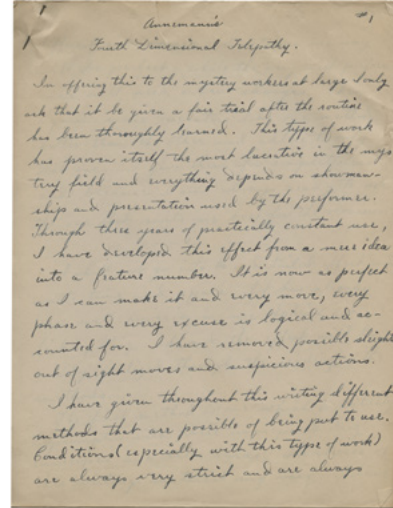 #1
Annemann's
Fourth Dimensional Telepathy.
In offering this to the mystery workers at large I only
ask that it be given a fair trial after the routine
has been thoroughly learned. This type of work
has proven itself the most lucrative in the mys-
tery field and everything depends on showman-
ship and presentation used by the performer.
Through three years of practically constant use,
I have developed this effect from a mere idea
into a feature number. It is now as perfect
as I can make it and every move, every
phase and every excuse is logical and ac-
counted for. I have removed possible sleights
out of sight moves and suspicious actions.
I have given throughout this writing different
methods that are possible of being put to use.
Conditions (especially with this type of work)
are always very strict and are always